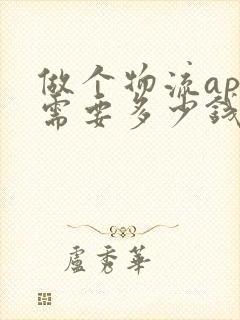 做个物流ap
需要多少钱
盧秀華